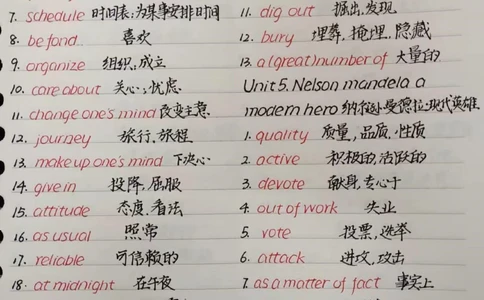 7. schedule 时间表;为某事安排时间
8. be fond 喜欢
9. organize 组织,成立
10. care about 关心,忧虑
11. change one's mind 改变主意
12. journey 旅行,旅程
13. make up one's mind 下决心
14. give in 投降,屈服
15. attitude 态度,看法
16. as usual 照常
17. reliable 可信赖的
18. at midnight 在午夜
11. dig out 掘出,发现
12. bury 埋葬,掩埋,隐藏
13. a (great) number of 大量的
Unit 5. Nelson mandela a
modern hero 纳尔逊·曼德拉:现代英雄
1. quality 质量,品质,性质
2. active 积极的,活跃的
3. devote 献身,专心于
4. out of work 失业
5. vote 投票,选举
6. attack 进攻,攻击
7. as a matter of fact 事实上